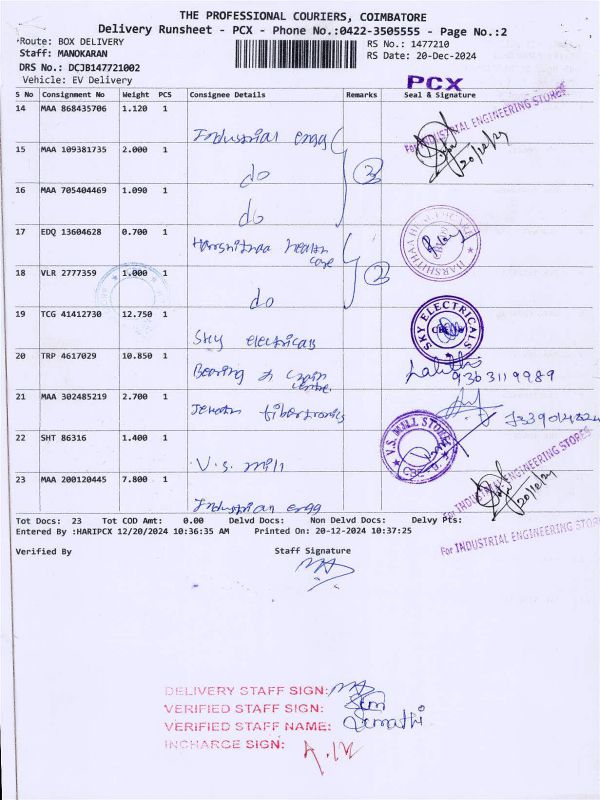 THE PROFESSIONAL COURIERS, COIMBATORE
Delivery Runsheet - PCX - Phone No.:0422-3505555 - Page No.:2
Route: BOX DELIVERY
RS No.: 1477210
Staff: MANOKARAN
RS Date: 20-Dec-2024
DRS No.: DCJB147721002
Vehicle: EV Delivery
PCX
S No Consignment No Weight PCS Consignee Details Remarks Seal & Signature
14 MAA 868435706 1.120 1
Industrial engg
For INDUSTRIAL ENGINEERING STORES
20/12/24
15 MAA 109381735 2.000 1
do
3
16 MAA 705404469 1.090 1
do
17 EDQ 13604628 0.700 1
Harshitnaa health care
18 VLR 2777359 1.000 1
do
2
19 TCG 41412730 12.750 1
Sky electricals
SKY ELECTRICALS
20 TRP 4617029 10.850 1
Bearing & chain centre
Lalitha
9363119989
21 MAA 302485219 2.700 1
fibertronics
22 SHT 86316 1.400 1
V.s. mill
V.S. MILL STORES
23 MAA 200120445 7.800 1
Industrial engg
For INDUSTRIAL ENGINEERING STORES
Tot Docs: 23 Tot COD Amt: 0.00 Delvd Docs: Non Delvd Docs: Delvy Pts:
Entered By :HARIPCX 12/20/2024 10:36:35 AM Printed On: 20-12-2024 10:37:25
For INDUSTRIAL ENGINEERING STORES
Verified By Staff Signature
DELIVERY STAFF SIGN:
VERIFIED STAFF SIGN:
VERIFIED STAFF NAME:
INCHARGE SIGN: